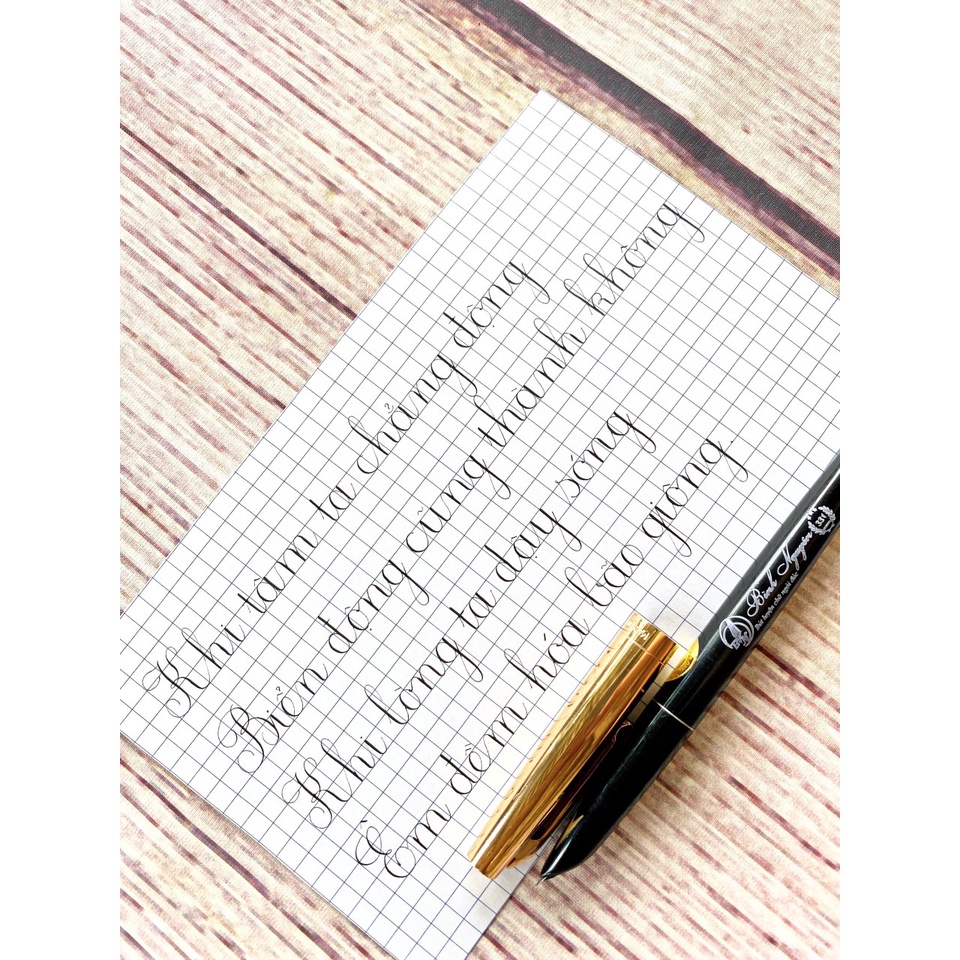 Khi tâm ta chẳng động
Biển động cũng thành không
Khi lòng ta dậy sóng
Êm đềm hóa bão giông.
Bình Nguyên
Bút luyện chữ ngòi đúc
331